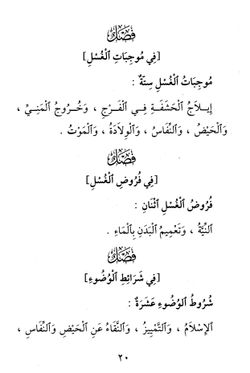 فَصْلٌ
[فِي مُوجِبَاتِ ٱلْغُسْلِ]
مُوجِبَاتُ ٱلْغُسْلِ سِتَّةٌ :
إِيلَاجُ ٱلْحَشَفَةِ فِي ٱلْفَرْجِ ، وَخُرُوجُ ٱلْمَنِيِّ ،
وَٱلْحَيْضُ ، وَٱلنِّفَاسُ ، وَٱلْوِلَادَةُ ، وَٱلْمَوْتُ .
فَصْلٌ
[فِي فُرُوضِ ٱلْغُسْلِ]
فُرُوضُ ٱلْغُسْلِ ٱثْنَانِ :
ٱلنِّيَّةُ ، وَتَعْمِيمُ ٱلْبَدَنِ بِٱلْمَاءِ .
فَصْلٌ
[فِي شَرَائِطِ ٱلْوُضُوءِ]
شُرُوطُ ٱلْوُضُوءِ عَشَرَةٌ :
ٱلْإِسْلَامُ ، وَٱلتَّمْيِيزُ ، وَٱلنَّقَاءُ عَنِ ٱلْحَيْضِ وَٱلنِّفَاسِ ،
٢٠